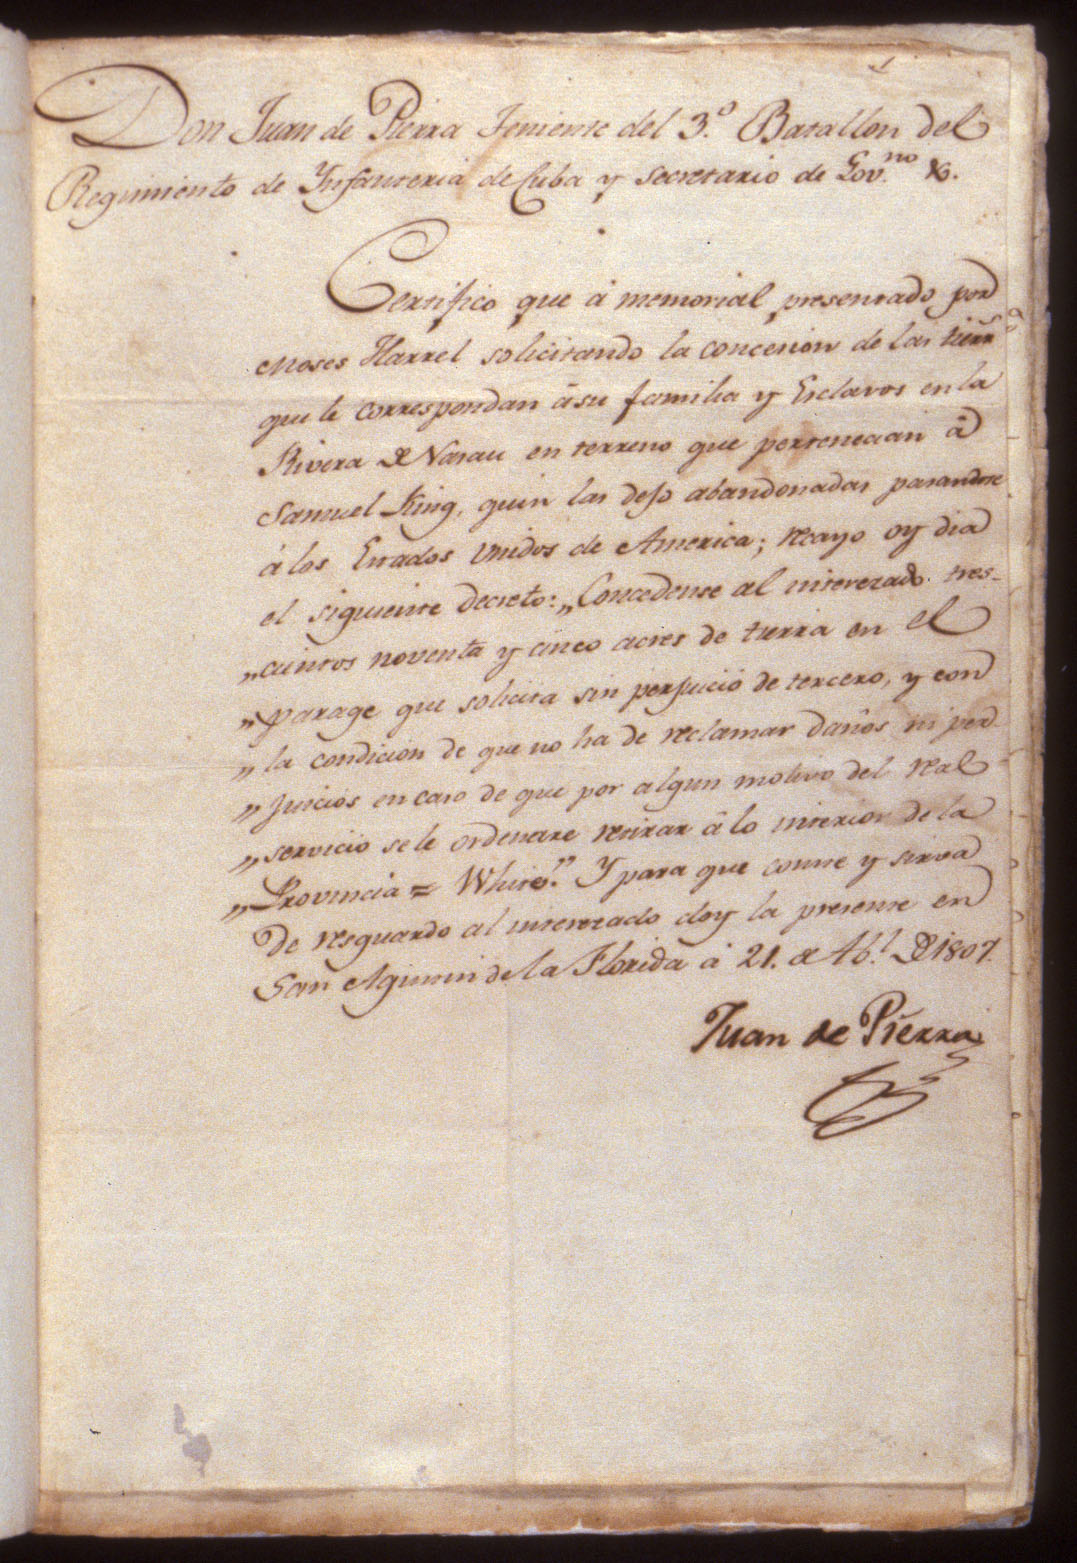 Don Juan de Pierra Teniente del 3.º Batallon del
Regimiento de Ynfanteria de Cuba y secretario de Gov.no &.
Certifico que á memorial presentado por
Moses Harrel solicitando la concesion de las tierrs
que le correspondan á su familia y Esclavos en la
Rivera de Nasau en terreno que pertenecian á
Samuel King, quien las dejo abandonadas pasandose
á los Estados Unidos de America; recayo oy dia
el siguiente decreto: „Concedense al interezado tres-
„cientos noventa y cinco acres de tierra en el
„parage que solicita sin perjuicio de tercero, y con
„la condicion de que no ha de reclamar daños ni per
„juicios en caso de que por algun motivo del real
„servicio se le ordenare retirar á lo interior de la
„Provincia = White." Y para que conste y sirva
de resguardo al interezado doy la presente en
San Agustin de la Florida á 21. de Ab.l de 1807.
Juan de Pierra